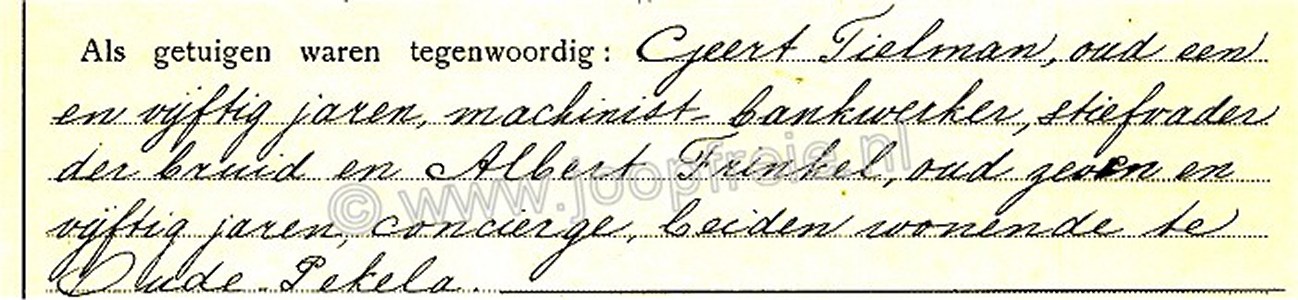 Als getuigen waren tegenwoordig: Geert Tielman, oud een
en vijftig jaren, machinist-bankwerker, stiefvader
der bruid en Albert Frinkel, oud zeven en
© www.joopfroje.nl
vijftig jaren, concierge, beiden wonende te
Oude-Pekela.